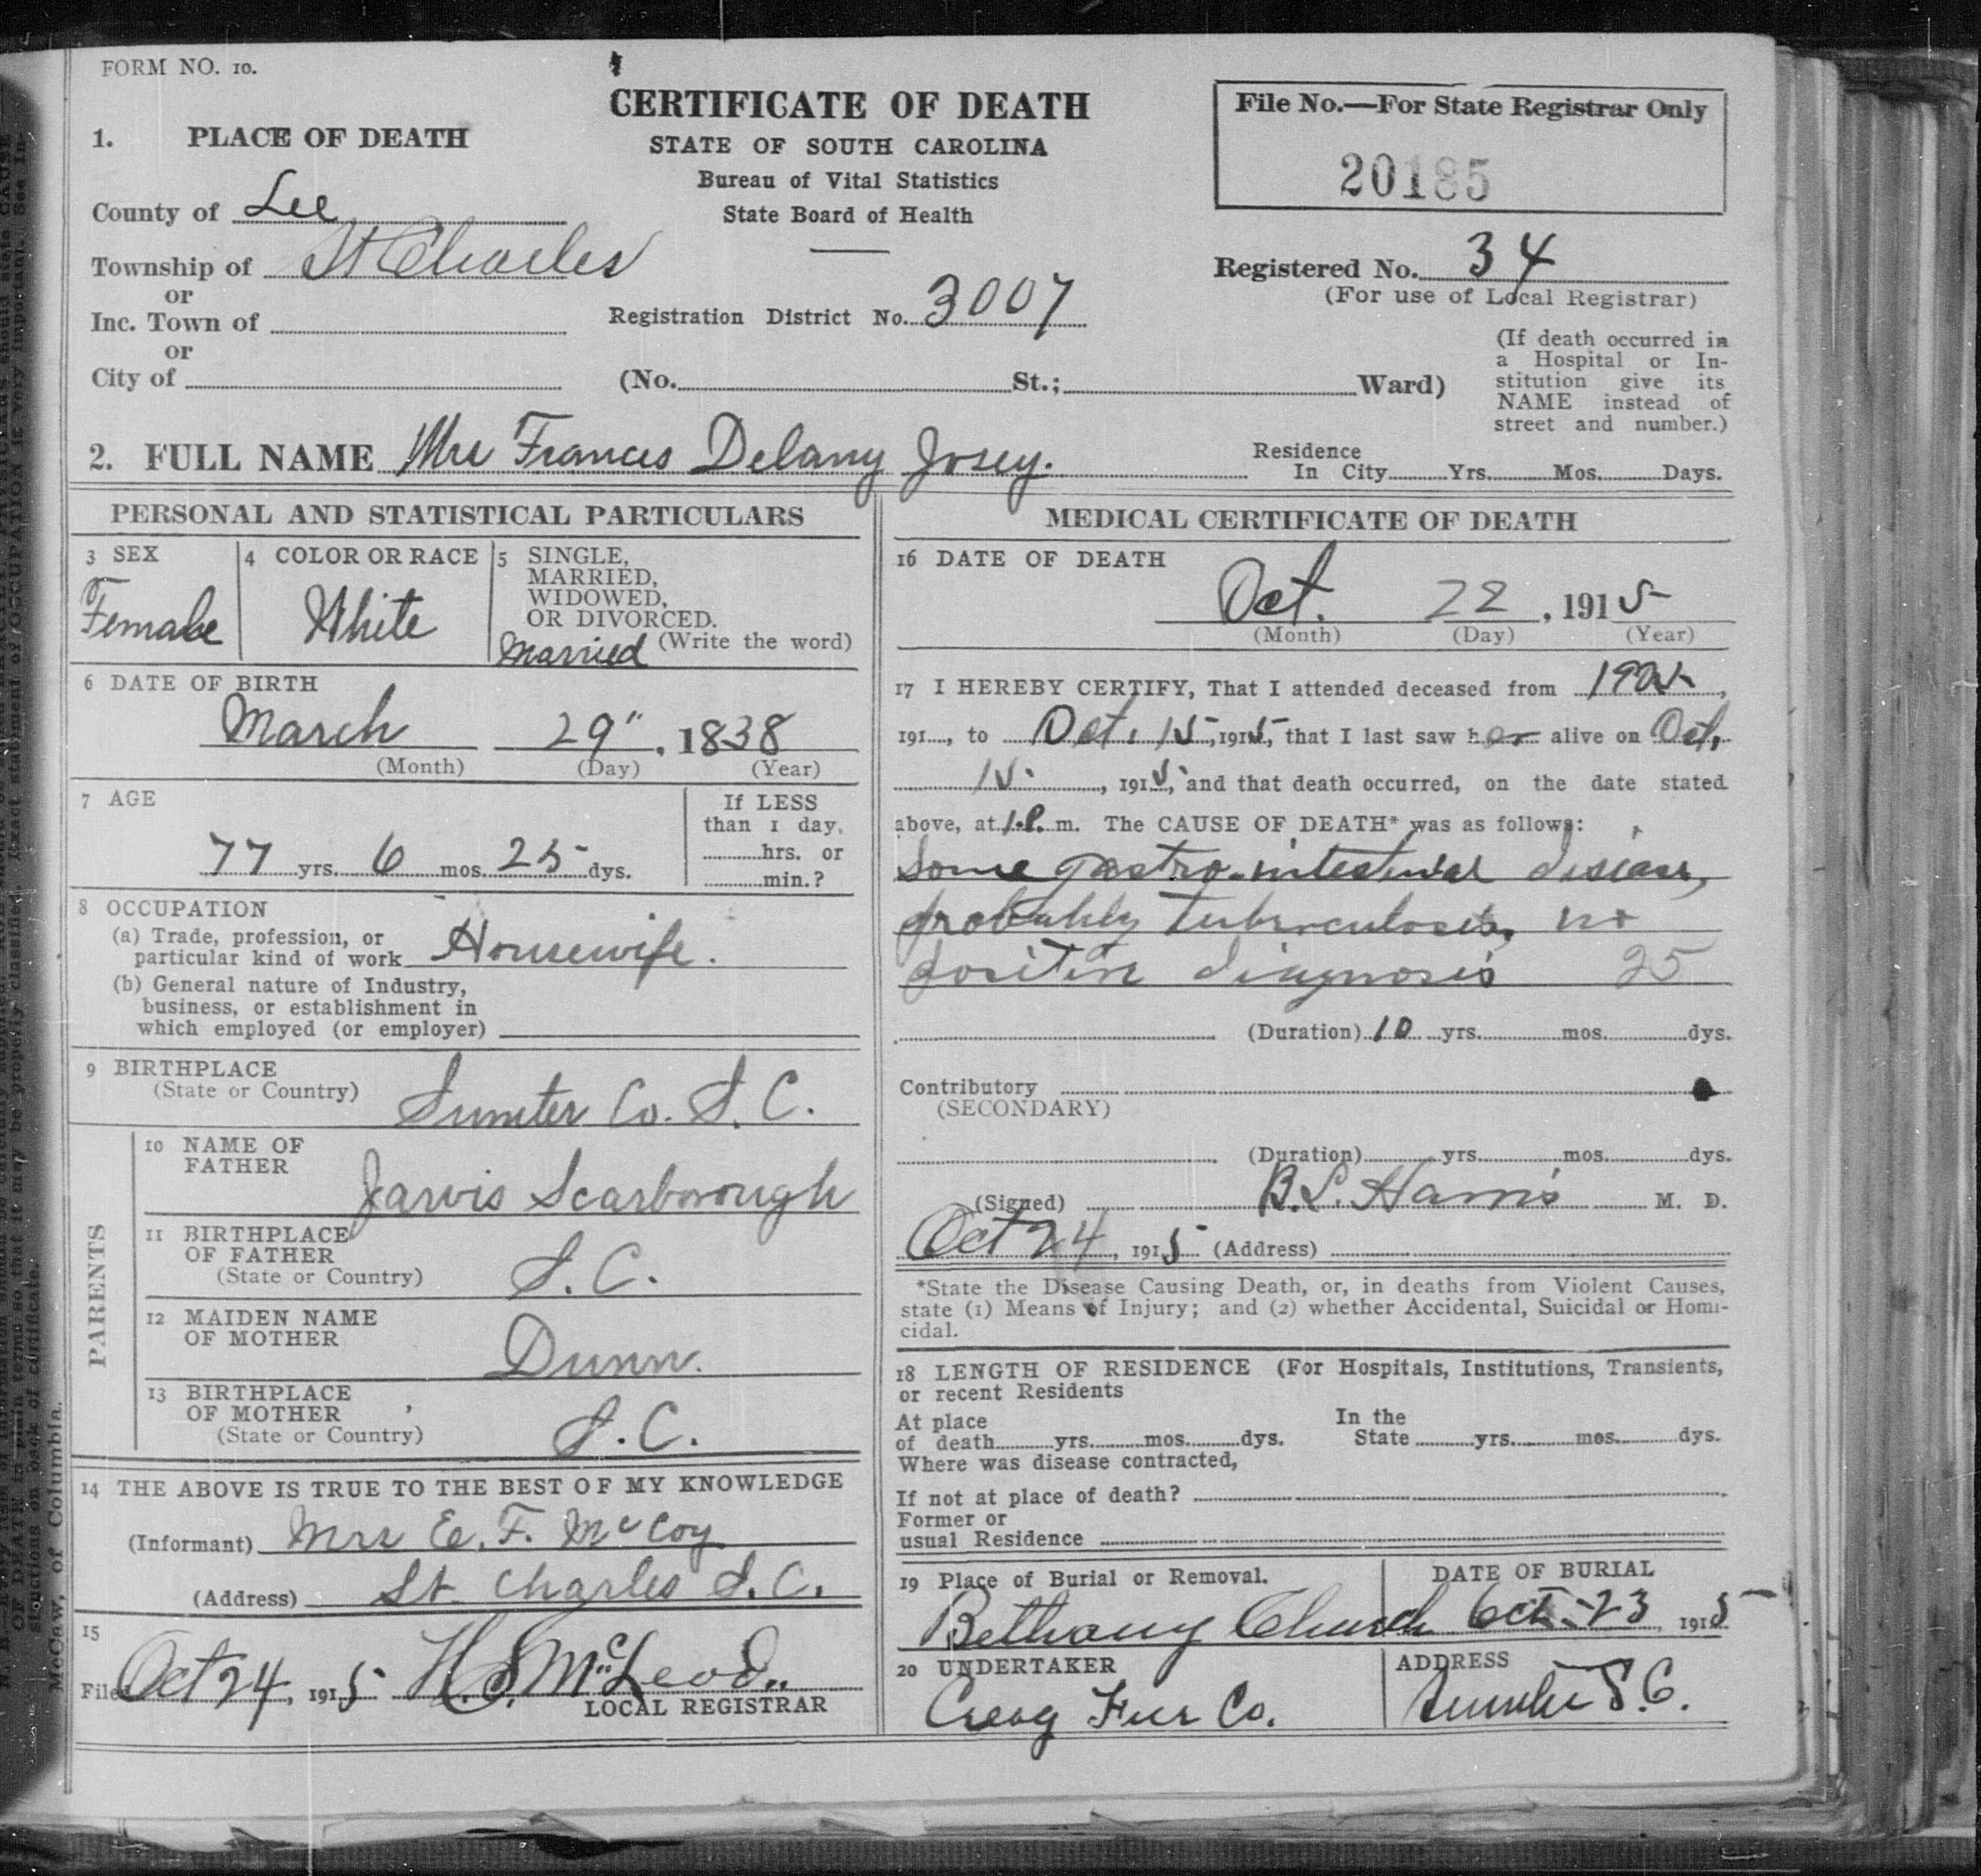 FORM NO. 10.
CERTIFICATE OF DEATH
STATE OF SOUTH CAROLINA
Bureau of Vital Statistics
State Board of Health
File No.—For State Registrar Only
20185
1. PLACE OF DEATH
County of Lee
Township of St Charles
or
Inc. Town of
or
City of
Registration District No. 3007
Registered No. 34
(For use of Local Registrar)
(No. St.; Ward)
(If death occurred in
a Hospital or In-
stitution give its
NAME instead of
street and number.)
2. FULL NAME Mrs Frances Delany Josey.
Residence
In City Yrs. Mos. Days.
PERSONAL AND STATISTICAL PARTICULARS
3 SEX
Female
4 COLOR OR RACE
White
5 SINGLE,
MARRIED,
WIDOWED,
OR DIVORCED.
(Write the word)
Married
6 DATE OF BIRTH
March 29", 1838
(Month) (Day) (Year)
7 AGE
77 yrs. 6 mos. 25 dys.
If LESS
than 1 day.
hrs. or
min.?
8 OCCUPATION
(a) Trade, profession, or
particular kind of work Housewife.
(b) General nature of Industry,
business, or establishment in
which employed (or employer)
9 BIRTHPLACE
(State or Country)
Sumter Co. S. C.
PARENTS
10 NAME OF
FATHER
Jarvis Scarborough
11 BIRTHPLACE
OF FATHER
(State or Country)
S. C.
12 MAIDEN NAME
OF MOTHER
Dunn.
13 BIRTHPLACE
OF MOTHER
(State or Country)
S. C.
14 THE ABOVE IS TRUE TO THE BEST OF MY KNOWLEDGE
(Informant) Mrs E. F. McCoy
(Address) St Charles S. C.
15
Filed Oct 24, 1915 H. S. McLeod
LOCAL REGISTRAR
MEDICAL CERTIFICATE OF DEATH
16 DATE OF DEATH
Oct. 22, 1915
(Month) (Day) (Year)
17 I HEREBY CERTIFY, That I attended deceased from
191 , to Oct. 15, 1915, that I last saw her alive on Oct.
15, 1915, and that death occurred, on the date stated
above, at 1.P. m. The CAUSE OF DEATH* was as follows:
Some gastro-intestinal disease,
probably tuberculosis, no
positive diagnosis 25
(Duration) 10 yrs. mos. dys.
Contributory
(SECONDARY)
(Duration) yrs. mos. dys.
(Signed) B. L. Harris M. D.
Oct 24, 1915 (Address)
*State the Disease Causing Death, or, in deaths from Violent Causes,
state (1) Means of Injury; and (2) whether Accidental, Suicidal or Homi-
cidal.
18 LENGTH OF RESIDENCE (For Hospitals, Institutions, Transients,
or recent Residents
At place
of death yrs. mos. dys.
In the
State yrs. mos. dys.
Where was disease contracted,
If not at place of death?
Former or
usual Residence
19 Place of Burial or Removal.
Bethany Church
DATE OF BURIAL
Oct-23, 1915
20 UNDERTAKER
Fur Co.
ADDRESS
Sumter S.C.
McCaw, of Columbia.